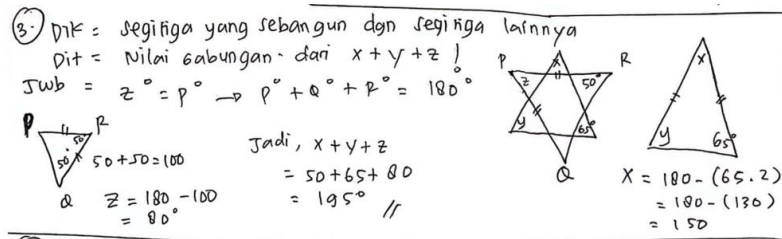 3. Dik = segitiga yang sebangun dgn segitiga lainnya
Dit = Nilai gabungan dari x + y + z !
Jwb = z° = p° → p° + Q° + R° = 180°
P R
50°
50°
Q
50+50=100
z = 180 - 100
= 80°
Jadi, x + y + z
= 50 + 65 + 80
= 195° //
P R
x
z 50°
y 65°
Q
x
y 65°
x = 180 - (65.2)
= 180 - (130)
= 150